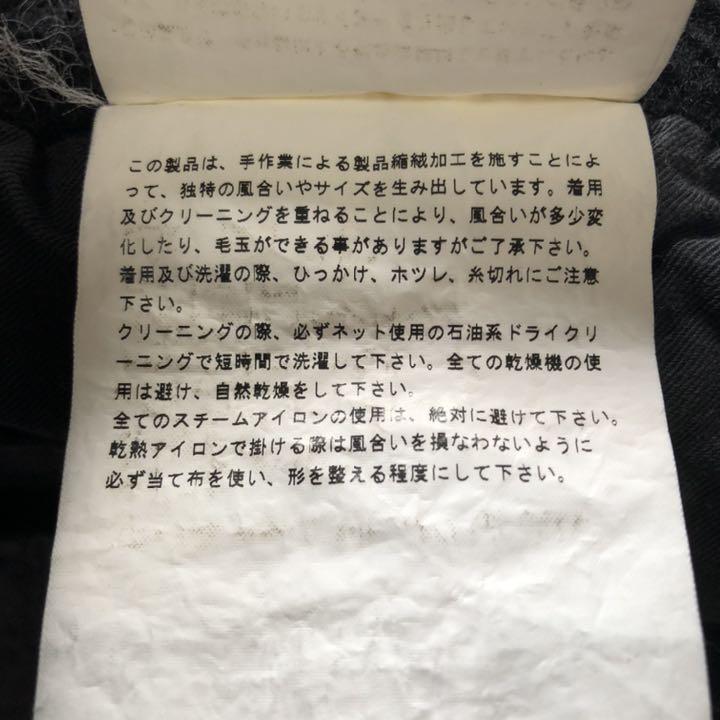 この製品は、手作業による製品縮絨加工を施すことによ
って、独特の風合いやサイズを生み出しています。着用
及びクリーニングを重ねることにより、風合いが多少変
化したり、毛玉ができる事がありますがご了承下さい。
着用及び洗濯の際、ひっかけ、ホツレ、糸切れにご注意
下さい。
クリーニングの際、必ずネット使用の石油系ドライクリ
ーニングで短時間で洗濯して下さい。全ての乾燥機の使
用は避け、自然乾燥をして下さい。
全てのスチームアイロンの使用は、絶対に避けて下さい。
乾熱アイロンで掛ける際は風合いを損なわないように
必ず当て布を使い、形を整える程度にして下さい。